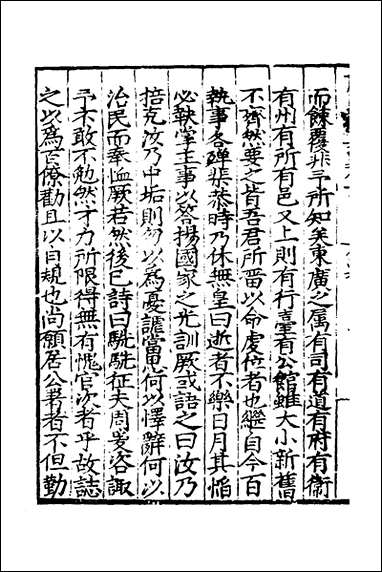 而餗覆非予所知矣東廣之属有司有道有府有衛
有州有所有邑又上則有行臺有公館雖大小新舊
不齊然要之皆吾君所畱以命處位者也繼自今百
執事各殫悲恭時乃休無皇曰逝者不樂日月其慆
必鞅掌王事以答揚國家之光訓厥或語之曰汝乃
掊克汝乃中垢則以為憂讟當思何以懌辭何以
治民而奉恤厥若然後已詩曰駪駪征夫周爰咨諏
予未敢不勉然才力所限得無有愧官次者乎故誌
之以為百僚勸且以自規也尚願居公署者不但勤